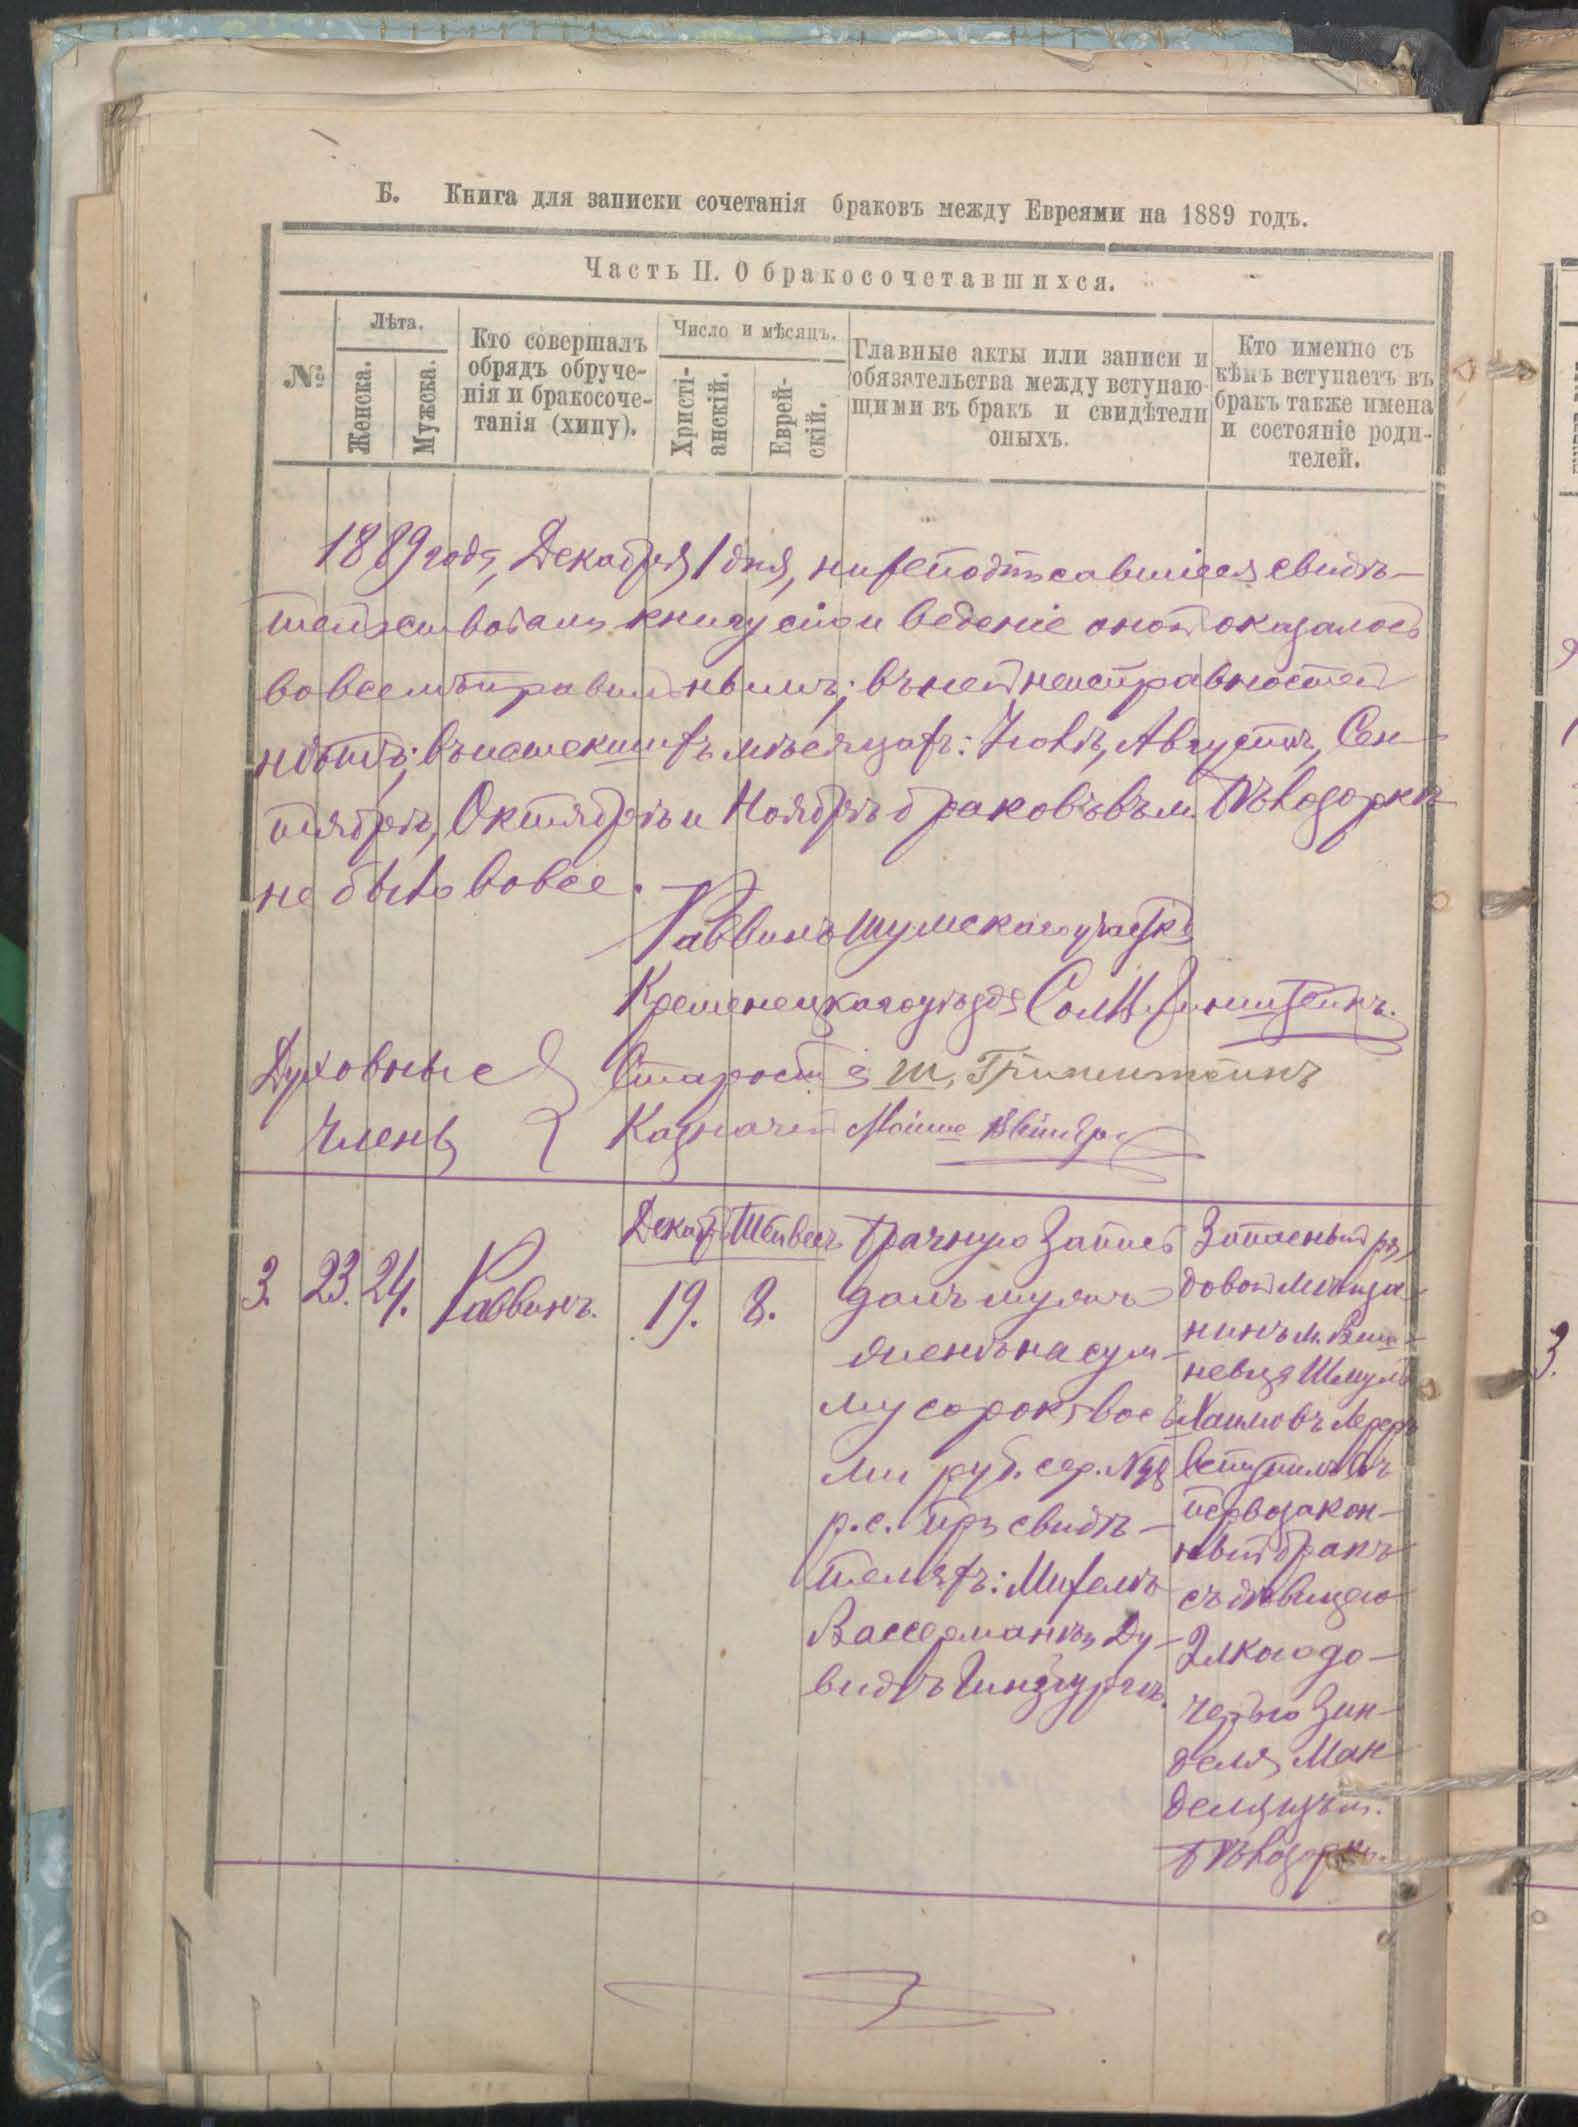 Б. Книга для записки сочетанія браковъ между Евреями на 1889 годъ.
Часть II. О бракосочетавшихся.
№
Лѣта.
Женска.
Мужска.
Кто совершалъ
обрядъ обруче-
нія и бракосоче-
танія (хипу).
Число и мѣсяцъ.
Христі-
анскій.
Еврей-
скій.
Главные акты или записи и
обязательства между вступаю-
щими въ бракъ и свидѣтели
оныхъ.
Кто именно съ
кѣмъ вступаетъ въ
бракъ также имена
и состояніе роди-
телей.
1889 года, Декабря 1 дня, нижеподписавшіеся свидѣ-
тельствовали книгу сію и веденіе оной оказалось
во всемъ правильнымъ; въ ней неисправностей
нѣтъ; въ истекшихъ мѣсяцахъ: Іюлѣ, Августѣ, Сен-
тябрѣ, Октябрѣ и Ноябрѣ браковъ въ м. Бѣлозоркѣ
не было вовсе.
Раввинъ Шумскаго участка
Кременецкаго уѣзда
Духовные
члены
Староста Ш. Гринштейнъ
Казначей Мойше
3. 23. 24. Раввинъ.
Декабр. Тейвесъ
19. 8.
Брачную Запись
далъ мужъ
женѣ на сум-
му сорокъ восе
ми руб. сер. 48
р. с. при свидѣ-
теляхъ: Михелѣ
Вассерманѣ и Ду-
видѣ Гинзбургѣ.
Запасный ря
довой мѣща-
нинъ м. Виш-
невца Шмуль
Хаимовъ Лереръ
вступилъ въ
первозакон-
ный бракъ
съ дѣвицею
Элкою до-
черью Зин-
деля Ман
деля изъ м.
Бѣлозорки.